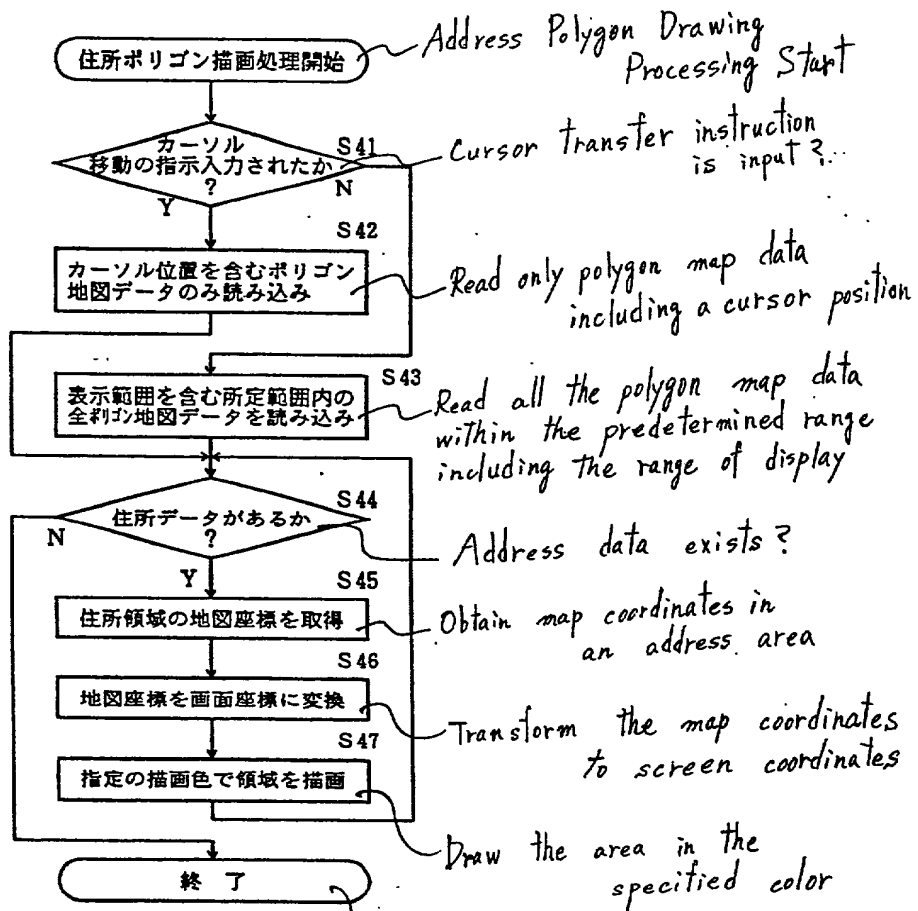 住所ポリゴン描画処理開始
Address Polygon Drawing
Processing Start
カーソル
移動の指示入力されたか
?
S41
N
Y
Cursor transfer instruction
is input?
S42
カーソル位置を含むポリゴン
地図データのみ読み込み
Read only polygon map data
including a cursor position
S43
表示範囲を含む所定範囲内の
全ポリゴン地図データを読み込み
Read all the polygon map data
within the predetermined range
including the range of display
S44
住所データがあるか
?
N
Y
Address data exists?
S45
住所領域の地図座標を取得
Obtain map coordinates in
an address area
S46
地図座標を画面座標に変換
Transform the map coordinates
to screen coordinates
S47
指定の描画色で領域を描画
Draw the area in the
specified color
終了